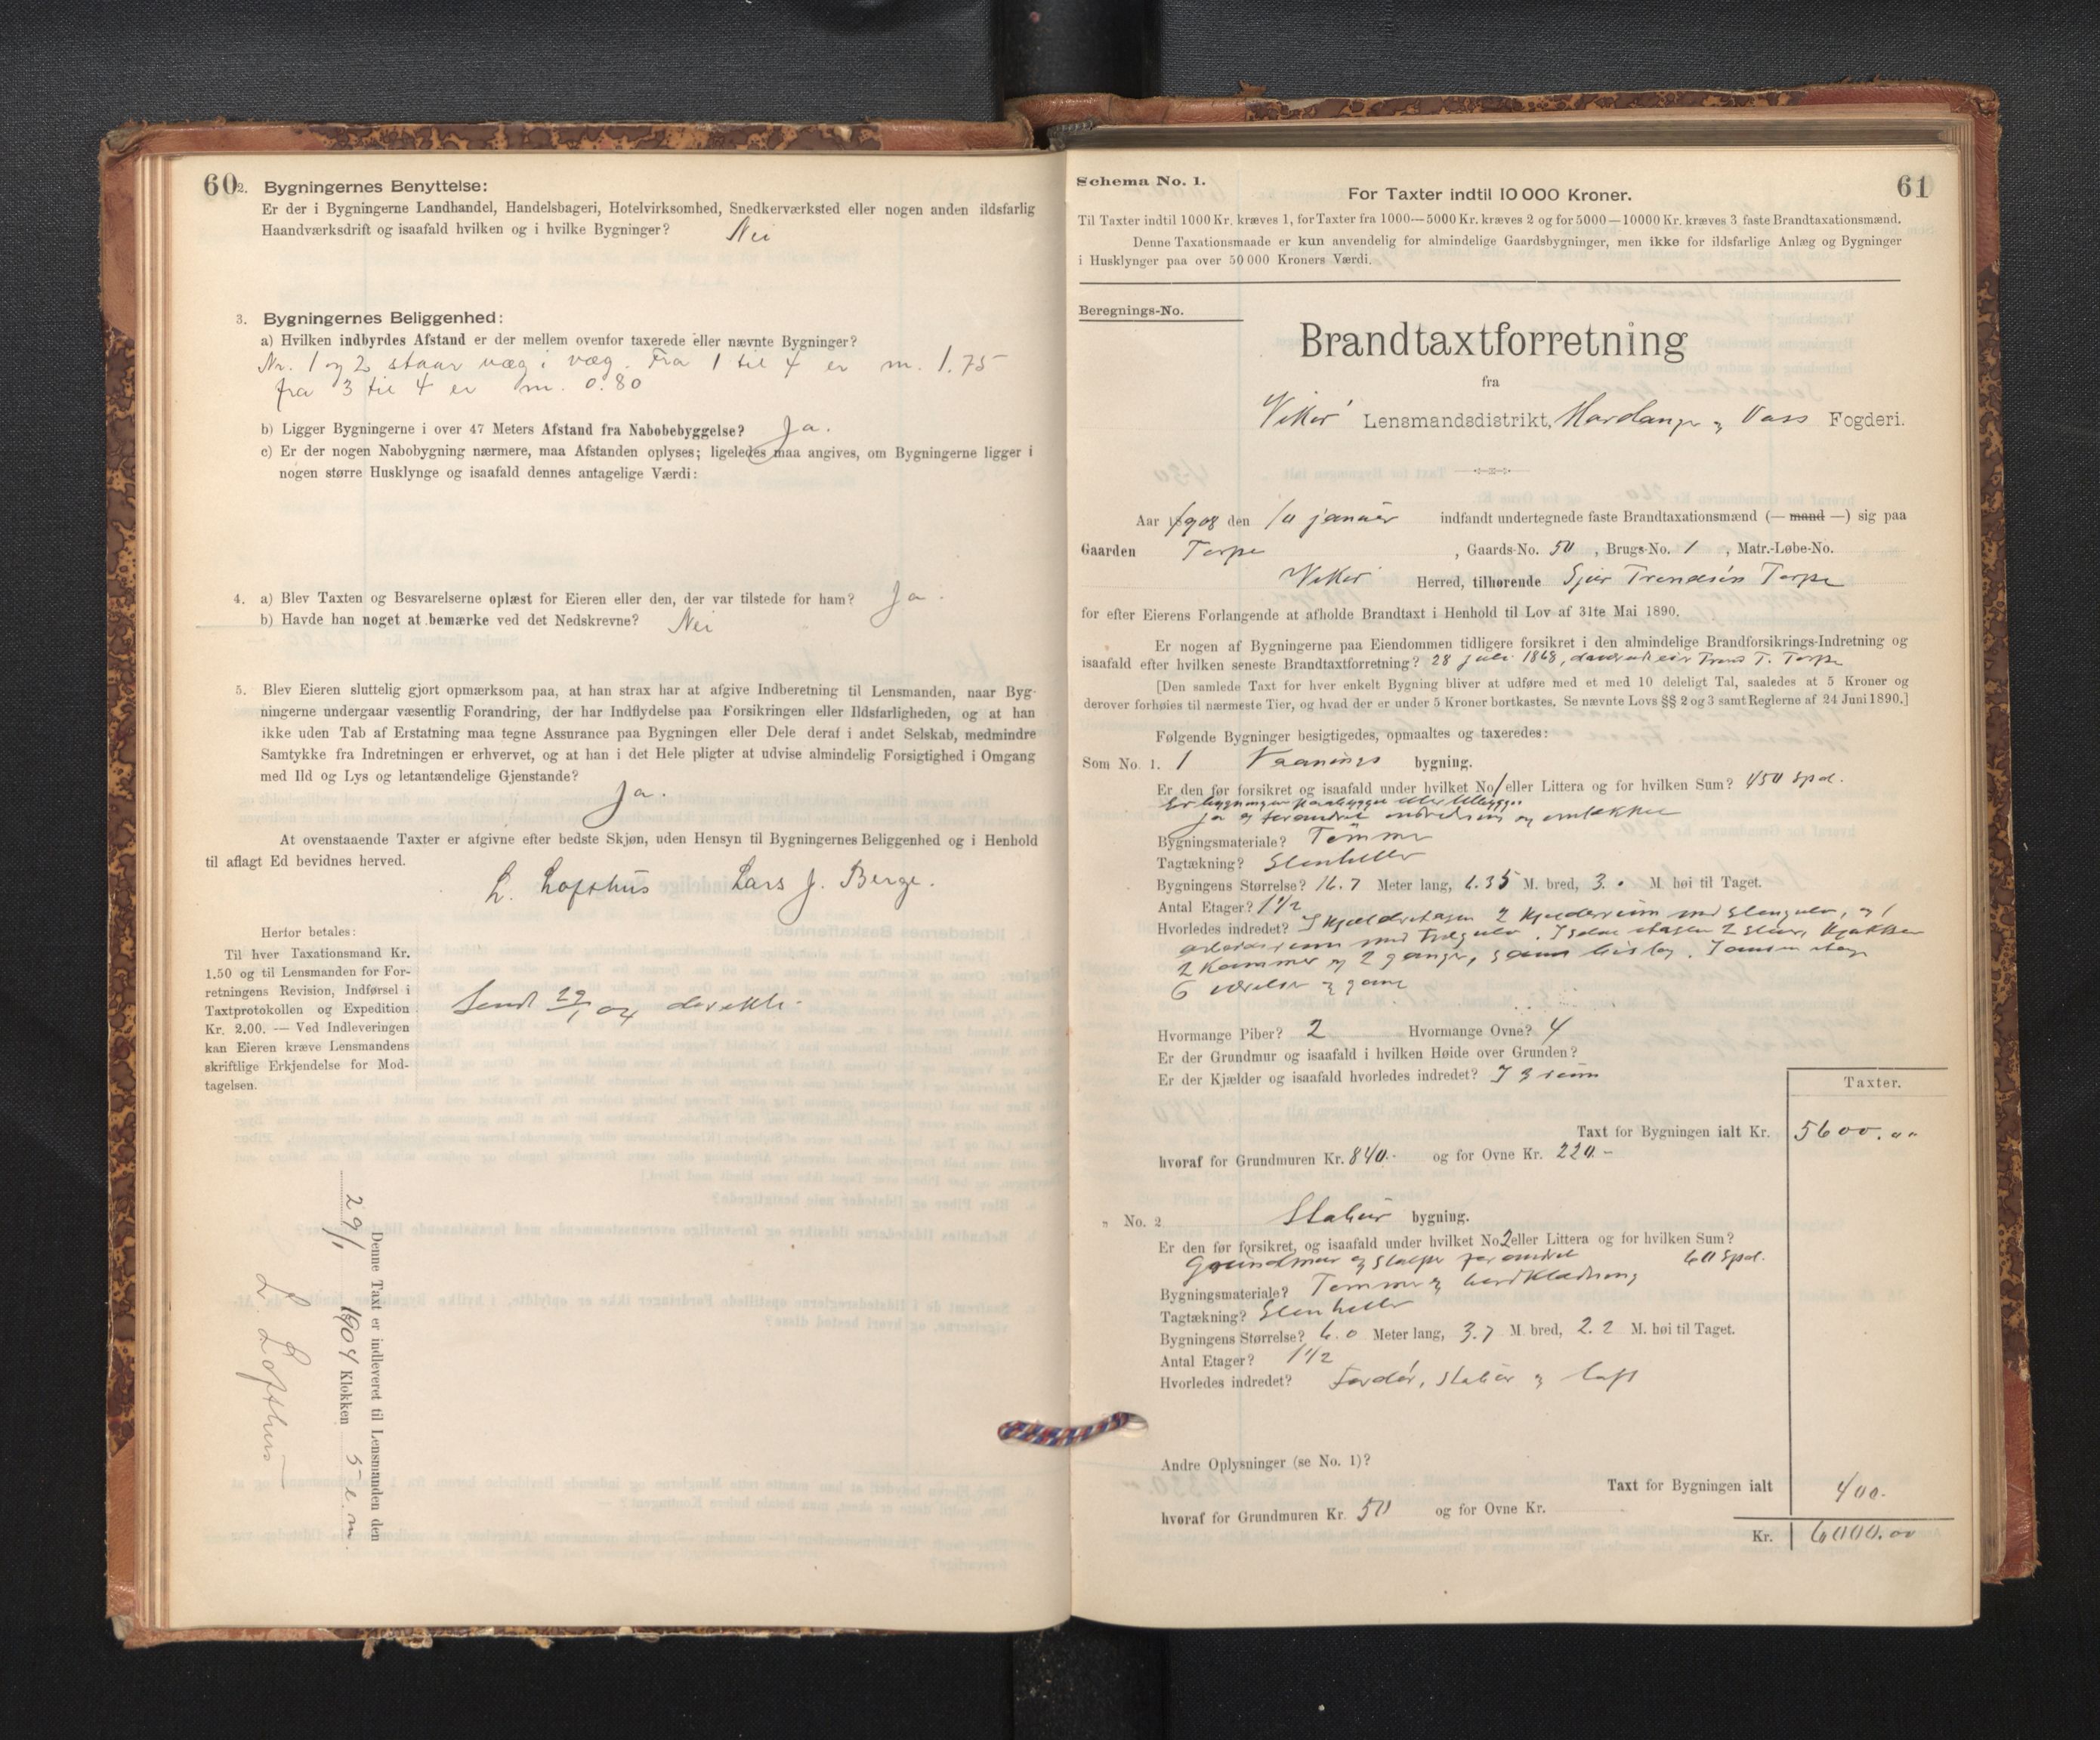 60
2. Bygningernes Benyttelse:
Er der i Bygningerne Landhandel, Handelsbageri, Hotelvirksomhed, Snedkerværksted eller nogen anden ildsfarlig
Haandværksdrift og isaafald hvilken og i hvilke Bygninger? Nei
3. Bygningernes Beliggenhed:
a) Hvilken indbyrdes Afstand er der mellem ovenfor taxerede eller nævnte Bygninger?
Nr. 1 og 2 staar væg i væg. Fra 1 til 4 er m. 1.75
fra 3 til 4 er m. 0.80
b) Ligger Bygningerne i over 47 Meters Afstand fra Nabobebyggelse? Ja.
c) Er der nogen Nabobygning nærmere, maa Afstanden oplyses; ligeledes maa angives, om Bygningerne ligger i
nogen større Husklynge og isaafald dennes antagelige Værdi:
4. a) Blev Taxten og Besvarelserne oplæst for Eieren eller den, der var tilstede for ham? Ja.
b) Havde han noget at bemærke ved det Nedskrevne? Nei
5. Blev Eieren sluttelig gjort opmærksom paa, at han strax har at afgive Indberetning til Lensmanden, naar Byg-
ningerne undergaar væsentlig Forandring, der har Indflydelse paa Forsikringen eller Ildsfarligheden, og at han
ikke uden Tab af Erstatning maa tegne Assurance paa Bygningen eller Dele deraf i andet Selskab, medmindre
Samtykke fra Indretningen er erhvervet, og at han i det Hele pligter at udvise almindelig Forsigtighed i Omgang
med Ild og Lys og letantændelige Gjenstande?
Ja.
At ovenstaaende Taxter er afgivne efter bedste Skjøn, uden Hensyn til Bygningernes Beliggenhed og i Henhold
til aflagt Ed bevidnes herved.
L. Lofthus Lars J. Berge.
Herfor betales:
Til hver Taxationsmand Kr.
1.50 og til Lensmanden for For-
retningens Revision, Indførsel i
Taxtprotokollen og Expedition
Kr. 2.00. — Ved Indleveringen
kan Eieren kræve Lensmandens
skriftlige Erkjendelse for Mod-
tagelsen.
Sendt 29/1 04 direkte.
Denne Taxt er indleveret til Lensmanden den
29/1 1904 Klokken 5 e.m.
L. Lofthus
61
Schema No. 1.
For Taxter indtil 10 000 Kroner.
Til Taxter indtil 1000 Kr. kræves 1, for Taxter fra 1000—5000 Kr. kræves 2 og for 5000—10000 Kr. kræves 3 faste Brandtaxationsmænd.
Denne Taxationsmaade er kun anvendelig for almindelige Gaardsbygninger, men ikke for ildsfarlige Anlæg og Bygninger
i Husklynger paa over 50 000 Kroners Værdi.
Beregnings-No.
Brandtaxtforretning
fra
Vikør Lensmandsdistrikt, Hardanger og Voss Fogderi.
Aar 1908 den 10 januar indfandt undertegnede faste Brandtaxationsmænd (— mand —) sig paa
Gaarden Torpe, Gaards-No. 50, Brugs-No. 1, Matr.-Løbe-No.
Vikør Herred, tilhørende Sjur Trondsen Torpe
for efter Eierens Forlangende at afholde Brandtaxt i Henhold til Lov af 31te Mai 1890.
Er nogen af Bygningerne paa Eiendommen tidligere forsikret i den almindelige Brandforsikrings-Indretning og
isaafald efter hvilken seneste Brandtaxtforretning? 28 juli 1868, daværende eier Trond T. Torpe
[Den samlede Taxt for hver enkelt Bygning bliver at udføre med et med 10 deleligt Tal, saaledes at 5 Kroner og
derover forhøies til nærmeste Tier, og hvad der er under 5 Kroner bortkastes. Se nævnte Lovs §§ 2 og 3 samt Reglerne af 24 Juni 1890.]
Følgende Bygninger besigtigedes, opmaaltes og taxeredes:
Som No. 1. 1 Vaanings bygning.
Er den før forsikret og isaafald under hvilket No 1 eller Littera og for hvilken Sum? 450 Spd.
Er bygningen paabygget eller tilbygget
ja og forandret indredning og omtækket
Bygningsmateriale? Tømmer
Tagtækning? Stenheller
Bygningens Størrelse? 16.7 Meter lang, 6.35 M. bred, 3.0 M. høi til Taget.
Antal Etager? 1 1/2
Hvorledes indredet? I Kjælderetagen 2 Kjælderrum med Stengulv, og 1
arbeidsrum med Trægulv. I 1ste etagen 2 Stuer, Kjøkken
2 Kammer og 2 gange, samt bislag. I anden etage
6 værelser og gang
Hvormange Piber? 2 Hvormange Ovne? 4
Er der Grundmur og isaafald i hvilken Høide over Grunden?
Er der Kjælder og isaafald hvorledes indredet? I 3 rum
Taxter.
Taxt for Bygningen ialt Kr. 5600.00
hvoraf for Grundmuren Kr. 840.- og for Ovne Kr. 220.-
„ No. 2 Stabur bygning.
Er den før forsikret, og isaafald under hvilket No 2 eller Littera og for hvilken Sum?
Grundmur og Stolper forandret 60 Spd.
Bygningsmateriale? Tømmer og bordklædning
Tagtækning? Stenheller
Bygningens Størrelse? 6.0 Meter lang, 3.7 M. bred, 2.2 M. høi til Taget.
Antal Etager? 1 1/2
Hvorledes indredet? Fordør, stabur og loft
Andre Oplysninger (se No. 1)?
Taxt for Bygningen ialt 400.
hvoraf for Grundmuren Kr. 50 og for Ovne Kr.
Kr. 6000.00